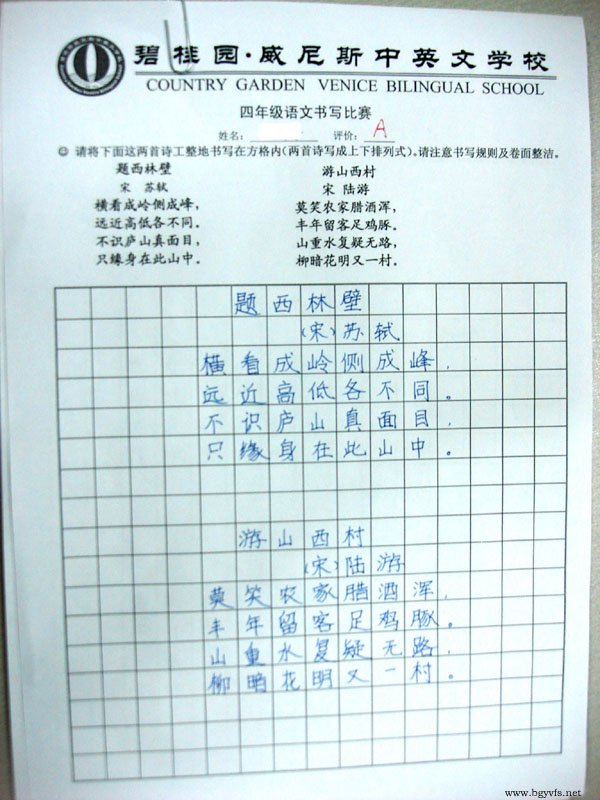 碧桂园·威尼斯中英文学校
COUNTRY GARDEN VENICE BILINGUAL SCHOOL
四年级语文书写比赛
姓名: 评价: A
☺ 请将下面这两首诗工整地书写在方格内(两首诗写成上下排列式)。请注意书写规则及卷面整洁。
题西林壁
宋 苏轼
横看成岭侧成峰,
远近高低各不同。
不识庐山真面目,
只缘身在此山中。
游山西村
宋 陆游
莫笑农家腊酒浑,
丰年留客足鸡豚。
山重水复疑无路,
柳暗花明又一村。
题西林壁
(宋)苏轼
横看成岭侧成峰,
远近高低各不同。
不识庐山真面目,
只缘身在此山中。
游山西村
(宋)陆游
莫笑农家腊酒浑,
丰年留客足鸡豚。
山重水复疑无路,
柳暗花明又一村。
www.bgyvfs.net